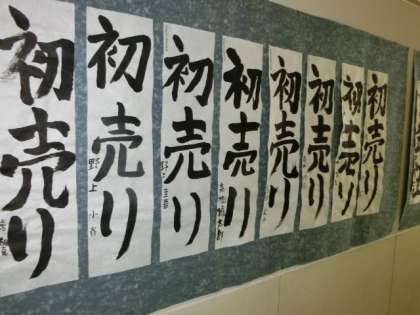 初売り
初売り
野上小谷
初売り
初売り
初売り
初売り
初売り
初売り